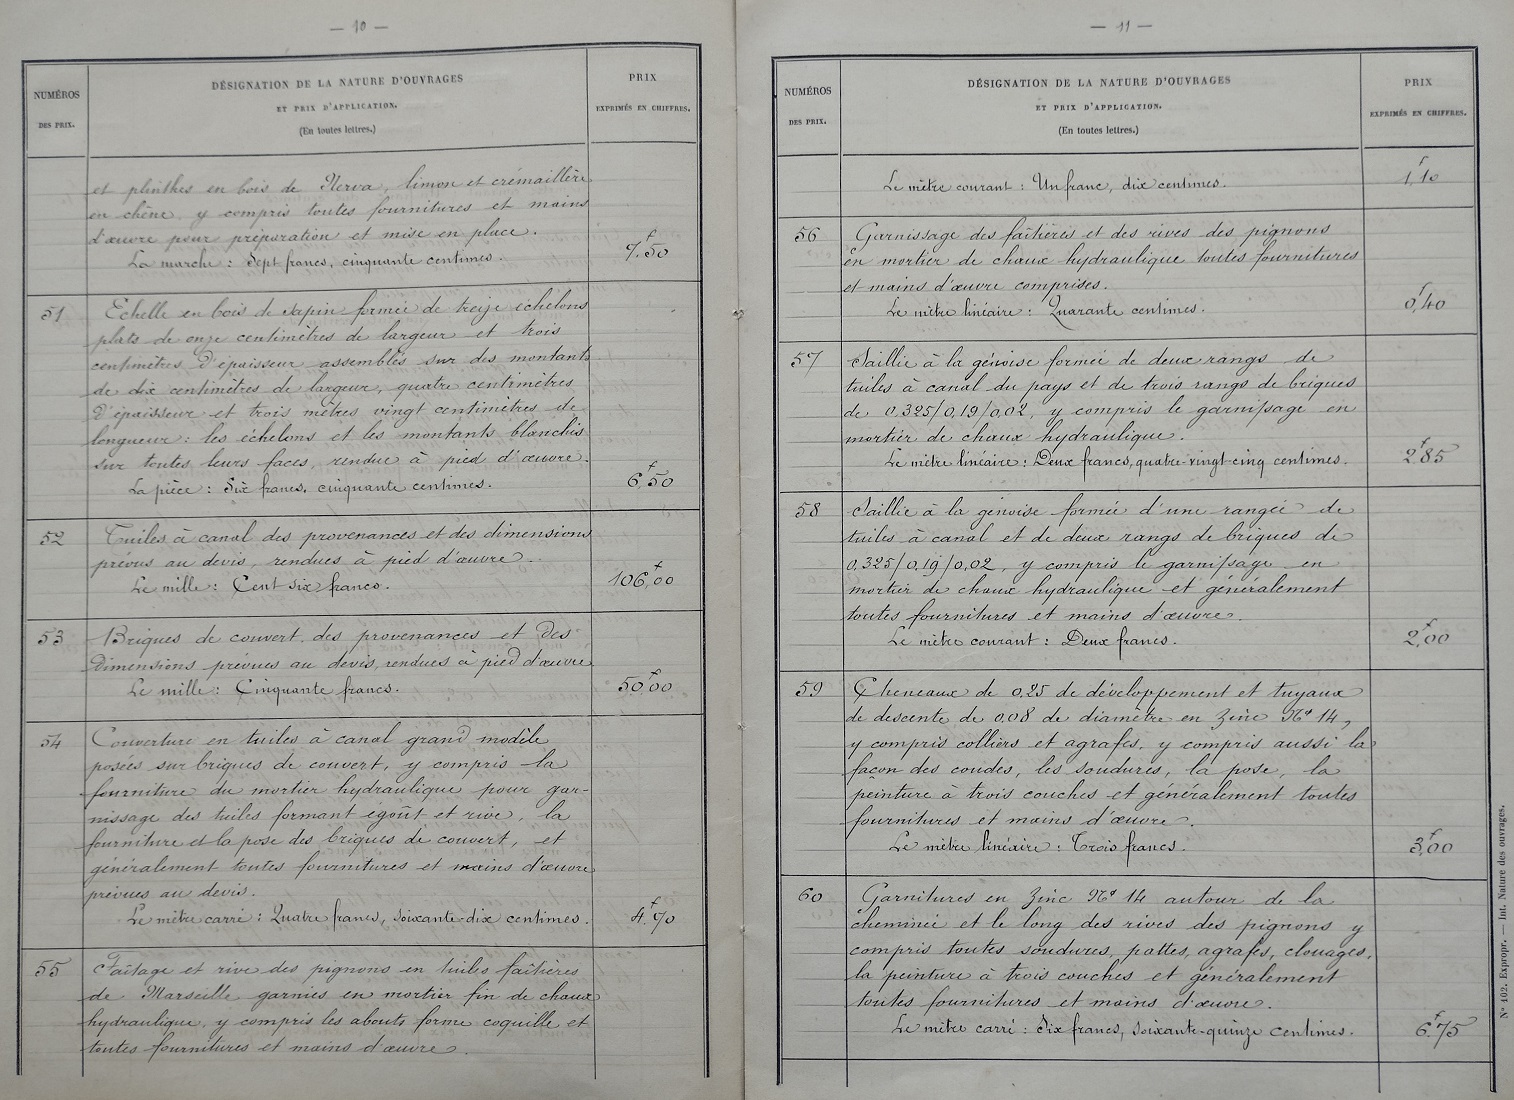 — 10 —
NUMÉROS
DES PRIX.
DÉSIGNATION DE LA NATURE D'OUVRAGES
ET PRIX D'APPLICATION.
(En toutes lettres.)
PRIX
EXPRIMÉS EN CHIFFRES.
et plinthes en bois de Nerva, limon et crémaillère
en chêne, y compris toutes fournitures et mains
d'œuvre pour préparation et mise en place.
La marche : Sept francs, cinquante centimes. 7f,50
51 Echelle en bois de sapin formée de treize échelons
plats de onze centimètres de largeur et trois
centimètres d'épaisseur assemblés sur des montants
de dix centimètres de largeur, quatre centimètres
d'épaisseur et trois mètres vingt centimètres de
longueur : les échelons et les montants blanchis
sur toutes leurs faces, rendue à pied d'œuvre.
La pièce : Six francs, cinquante centimes. 6f,50
52 Tuiles à canal des provenances et des dimensions
prévus au devis, rendues à pied d'œuvre.
Le mille : Cent six francs. 106f,00
53 Briques de couvert des provenances et des
dimensions prévues au devis, rendues à pied d'œuvre
Le mille : Cinquante francs. 50f,00
54 Couverture en tuiles à canal grand modèle
posées sur briques de couvert, y compris la
fourniture du mortier hydraulique pour gar-
nissage des tuiles formant égoût et rive, la
fourniture et la pose des briques de couvert, et
généralement toutes fournitures et mains d'œuvre
prévues au devis.
Le mètre carré : Quatre francs, soixante-dix centimes. 4f,70
55 Faîtage et rive des pignons en tuiles faîtières
de Marseille garnies en mortier fin de chaux
hydraulique, y compris les abouts forme coquille et
toutes fournitures et mains d'œuvre.
— 11 —
NUMÉROS
DES PRIX.
DÉSIGNATION DE LA NATURE D'OUVRAGES
ET PRIX D'APPLICATION.
(En toutes lettres.)
PRIX
EXPRIMÉS EN CHIFFRES.
Le mètre courant : Un franc, dix centimes. 1f,10
56 Garnissage des faîtières et des rives des pignons
en mortier de chaux hydraulique toutes fournitures
et mains d'œuvre comprises.
Le mètre linéaire : Quarante centimes. 0f,40
57 Saillie à la génoise formée de deux rangs de
tuiles à canal du pays et de trois rangs de briques
de 0,325/0,19/0,02, y compris le garnissage en
mortier de chaux hydraulique.
Le mètre linéaire : Deux francs, quatre-vingt-cinq centimes. 2f,85
58 Saillie à la génoise formée d'une rangée de
tuiles à canal et de deux rangs de briques de
0,325/0,19/0,02, y compris le garnissage en
mortier de chaux hydraulique et généralement
toutes fournitures et mains d'œuvre.
Le mètre courant : Deux francs. 2f,00
59 Cheneaux de 0,25 de développement et tuyaux
de descente de 0,08 de diamètre en zinc No 14,
y compris colliers et agrafes, y compris aussi la
façon des coudes, les soudures, la pose, la
peinture à trois couches et généralement toutes
fournitures et mains d'œuvre.
Le mètre linéaire : Trois francs. 3f,00
60 Garnitures en zinc No 14 autour de la
cheminée et le long des rives des pignons y
compris toutes soudures, pattes, agrafes, clouages,
la peinture à trois couches et généralement
toutes fournitures et mains d'œuvre.
Le mètre carré : Six francs, soixante-quinze centimes. 6f,75
No 102. Expropr. — Int. Nature des ouvrages.